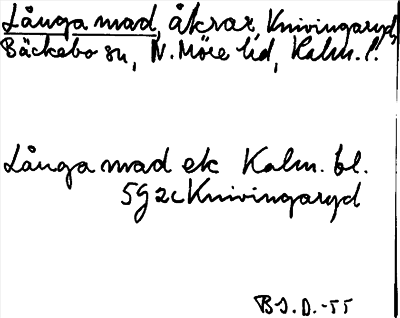 Långa mad, åkrar, Knivingaryd,
Bäckebo sn, N. Möre hd, Kalm. l.
Långa mad ek Kalm. bl.
5g2c Knivingaryd
B.J.D.-55